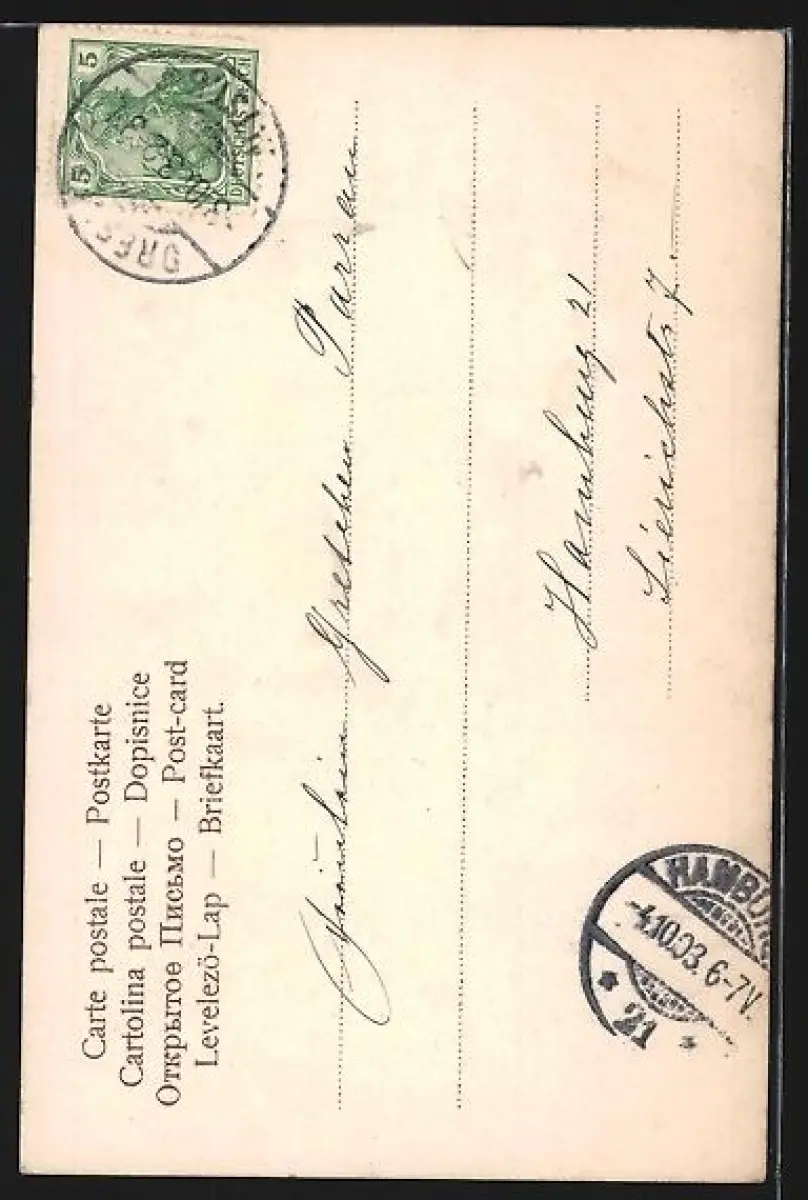 Carte postale — Postkarte
Cartolina postale — Dopisnice
Открытое Письмо — Post-card
Levelező-Lap — Briefkaart.
5
5
DEUTSCHES REICH
DRES
Fräulein Gretchen
Hamburg 21
7.
HAMBURG
-4.10.03. 6-7V.
* 21 *